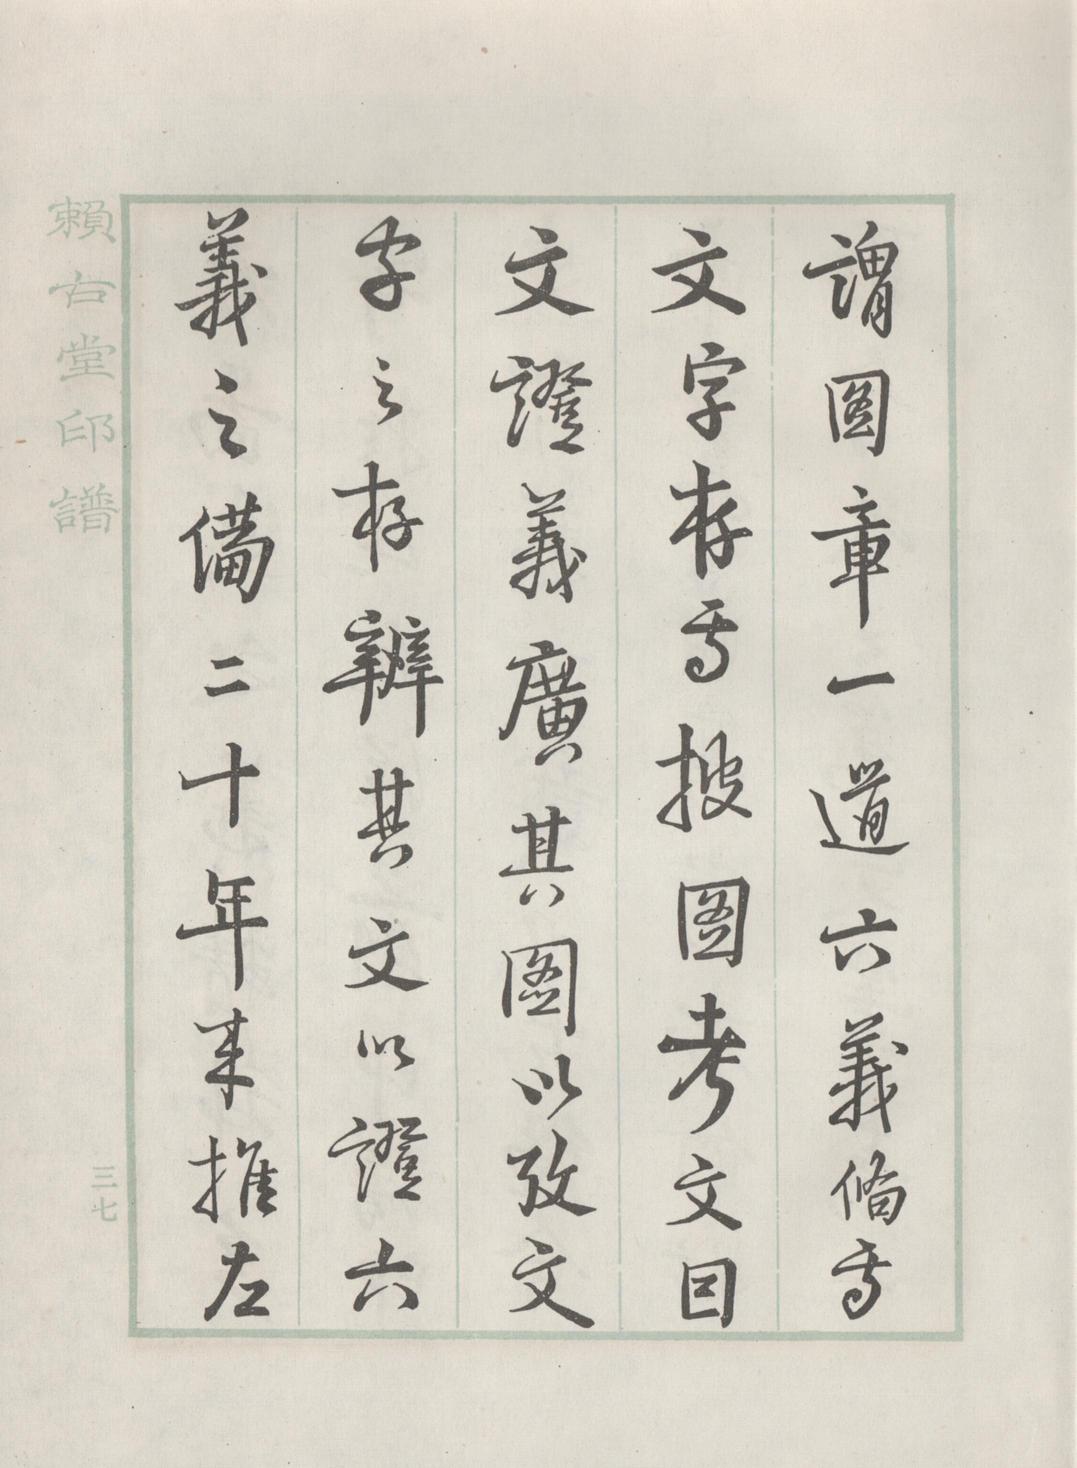 謂圖章一道六義備焉
文字存焉按圖考文因
文證義廣其圖以攷文
字之存辨其文以證六
義之備二十年來推左
賴古堂印譜
三七